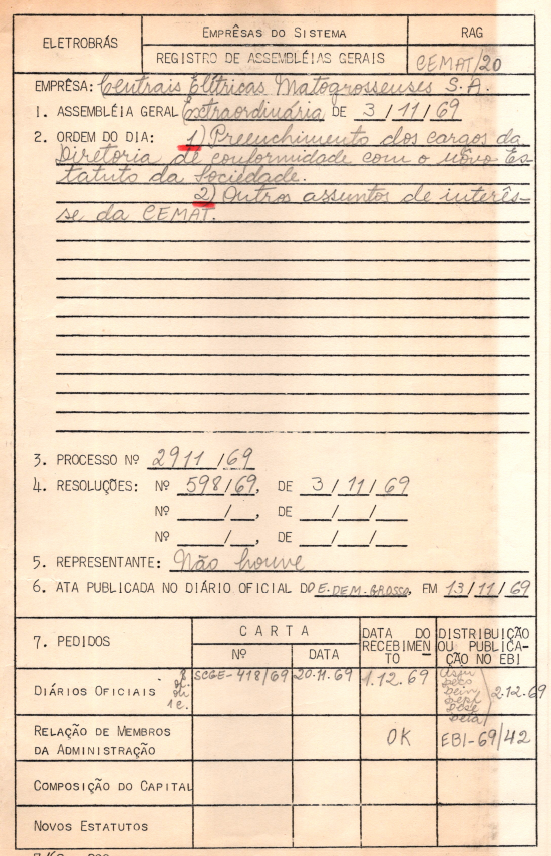 ELETROBRÁS
EMPRÊSAS DO SISTEMA
REGISTRO DE ASSEMBLÉIAS GERAIS
RAG
CEMAT/20
EMPRÊSA: Centrais Elétricas Matogrossenses S.A.
1. ASSEMBLÉIA GERAL Extraordinária DE 3/11/69
2. ORDEM DO DIA: 1) Preenchimento dos cargos da
Diretoria de conformidade com o nôvo Es-
tatuto da Sociedade.
2) Outros assuntos de interês-
se da CEMAT.
3. PROCESSO Nº 2911/69
4. RESOLUÇÕES: Nº 598/69, DE 3/11/69
Nº / , DE / /
Nº / , DE / /
5. REPRESENTANTE: Não houve
6. ATA PUBLICADA NO DIÁRIO OFICIAL DO E.DE M.GROSSO, EM 13/11/69
7. PEDIDOS
CARTA
Nº
DATA
DATA DO
RECEBIMEN
TO
DISTRIBUIÇÃO
OU PUBLICA-
ÇÃO NO EBI
DIÁRIOS OFICIAIS
SCGE-418/69 20.11.69 1.12.69 2.12.69
RELAÇÃO DE MEMBROS
DA ADMINISTRAÇÃO
OK EBI-69/42
COMPOSIÇÃO DO CAPITAL
NOVOS ESTATUTOS